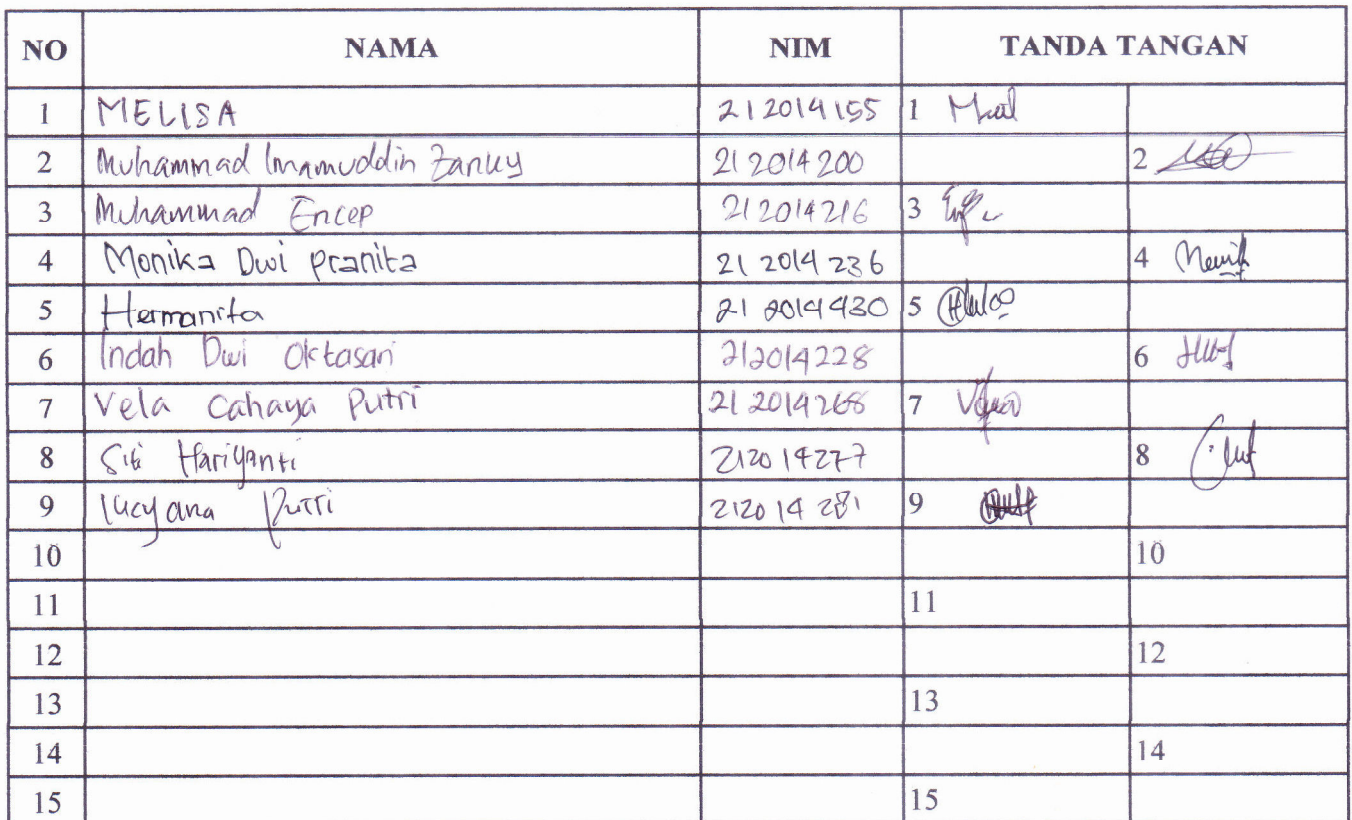 NO NAMA NIM TANDA TANGAN
1 MELISA 212014155 1
2 Muhammad Imamuddin Zanky 212014200 2
3 Muhammad Encep 212014216 3
4 Monika Dwi Pranita 212014236 4
5 Hermanita 212014430 5
6 Indah Dwi Oktasari 212014228 6
7 Vela Cahaya Putri 212014268 7
8 Siti Hariyanti 212014277 8
9 lucyana Putri 212014281 9
10 10
11 11
12 12
13 13
14 14
15 15